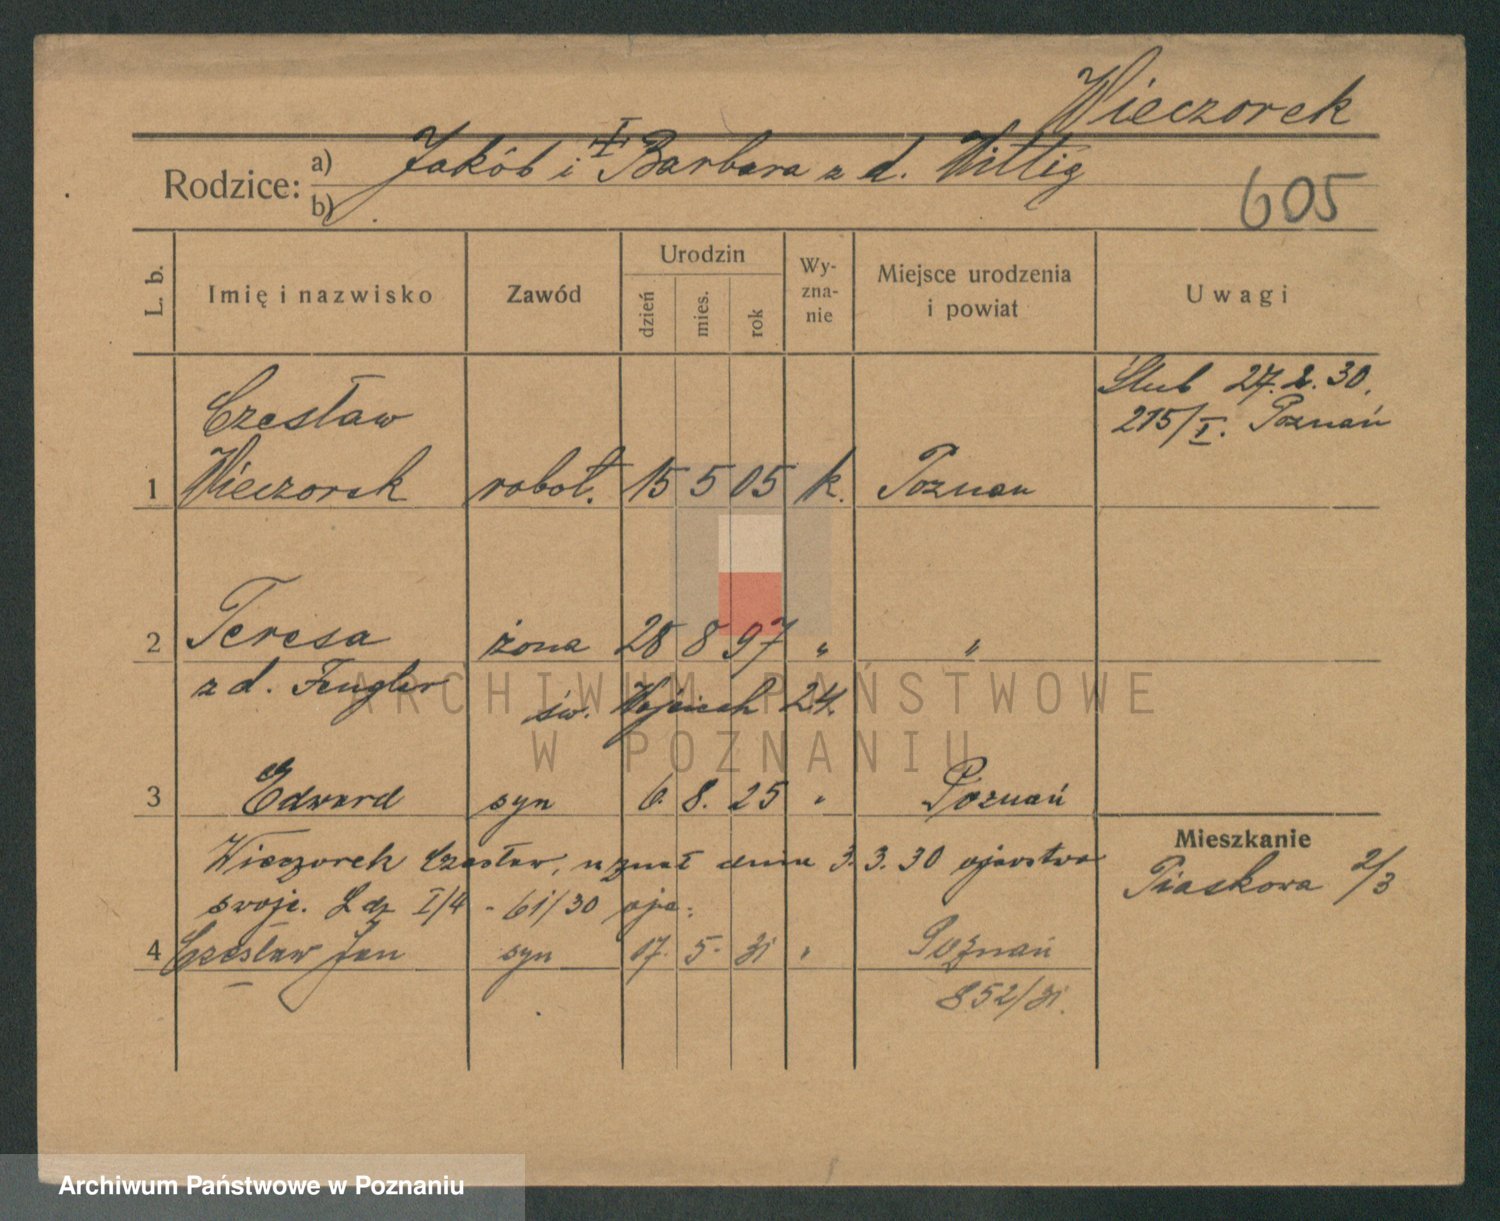 Wieczorek
Rodzice: a) Jakób i Barbara z d. Wittig
b)
605
L. b.
Imię i nazwisko
Zawód
Urodzin
dzień
mies.
rok
Wy-
zna-
nie
Miejsce urodzenia
i powiat
Uwagi
Ślub 27. 2. 30.
215/I. Poznań
Czesław
1 Wieczorek robot. 15 5 05 k. Poznan
2 Teresa żona 28 8 97 " "
z d. Fengler
św. Wojciech 24.
3 Edward syn 6. 8. 25 " Poznań
Wieczorek Czesław, uznał dnia 3. 3. 30 ojcostwo
swoje. L dz I/4 - 61/30
4 Czesław Jan syn 17. 5. 31 " Poznań
852/31.
Mieszkanie
Piaskowa 2/3
ARCHIWUM PAŃSTWOWE
W POZNANIU
Archiwum Państwowe w Poznaniu